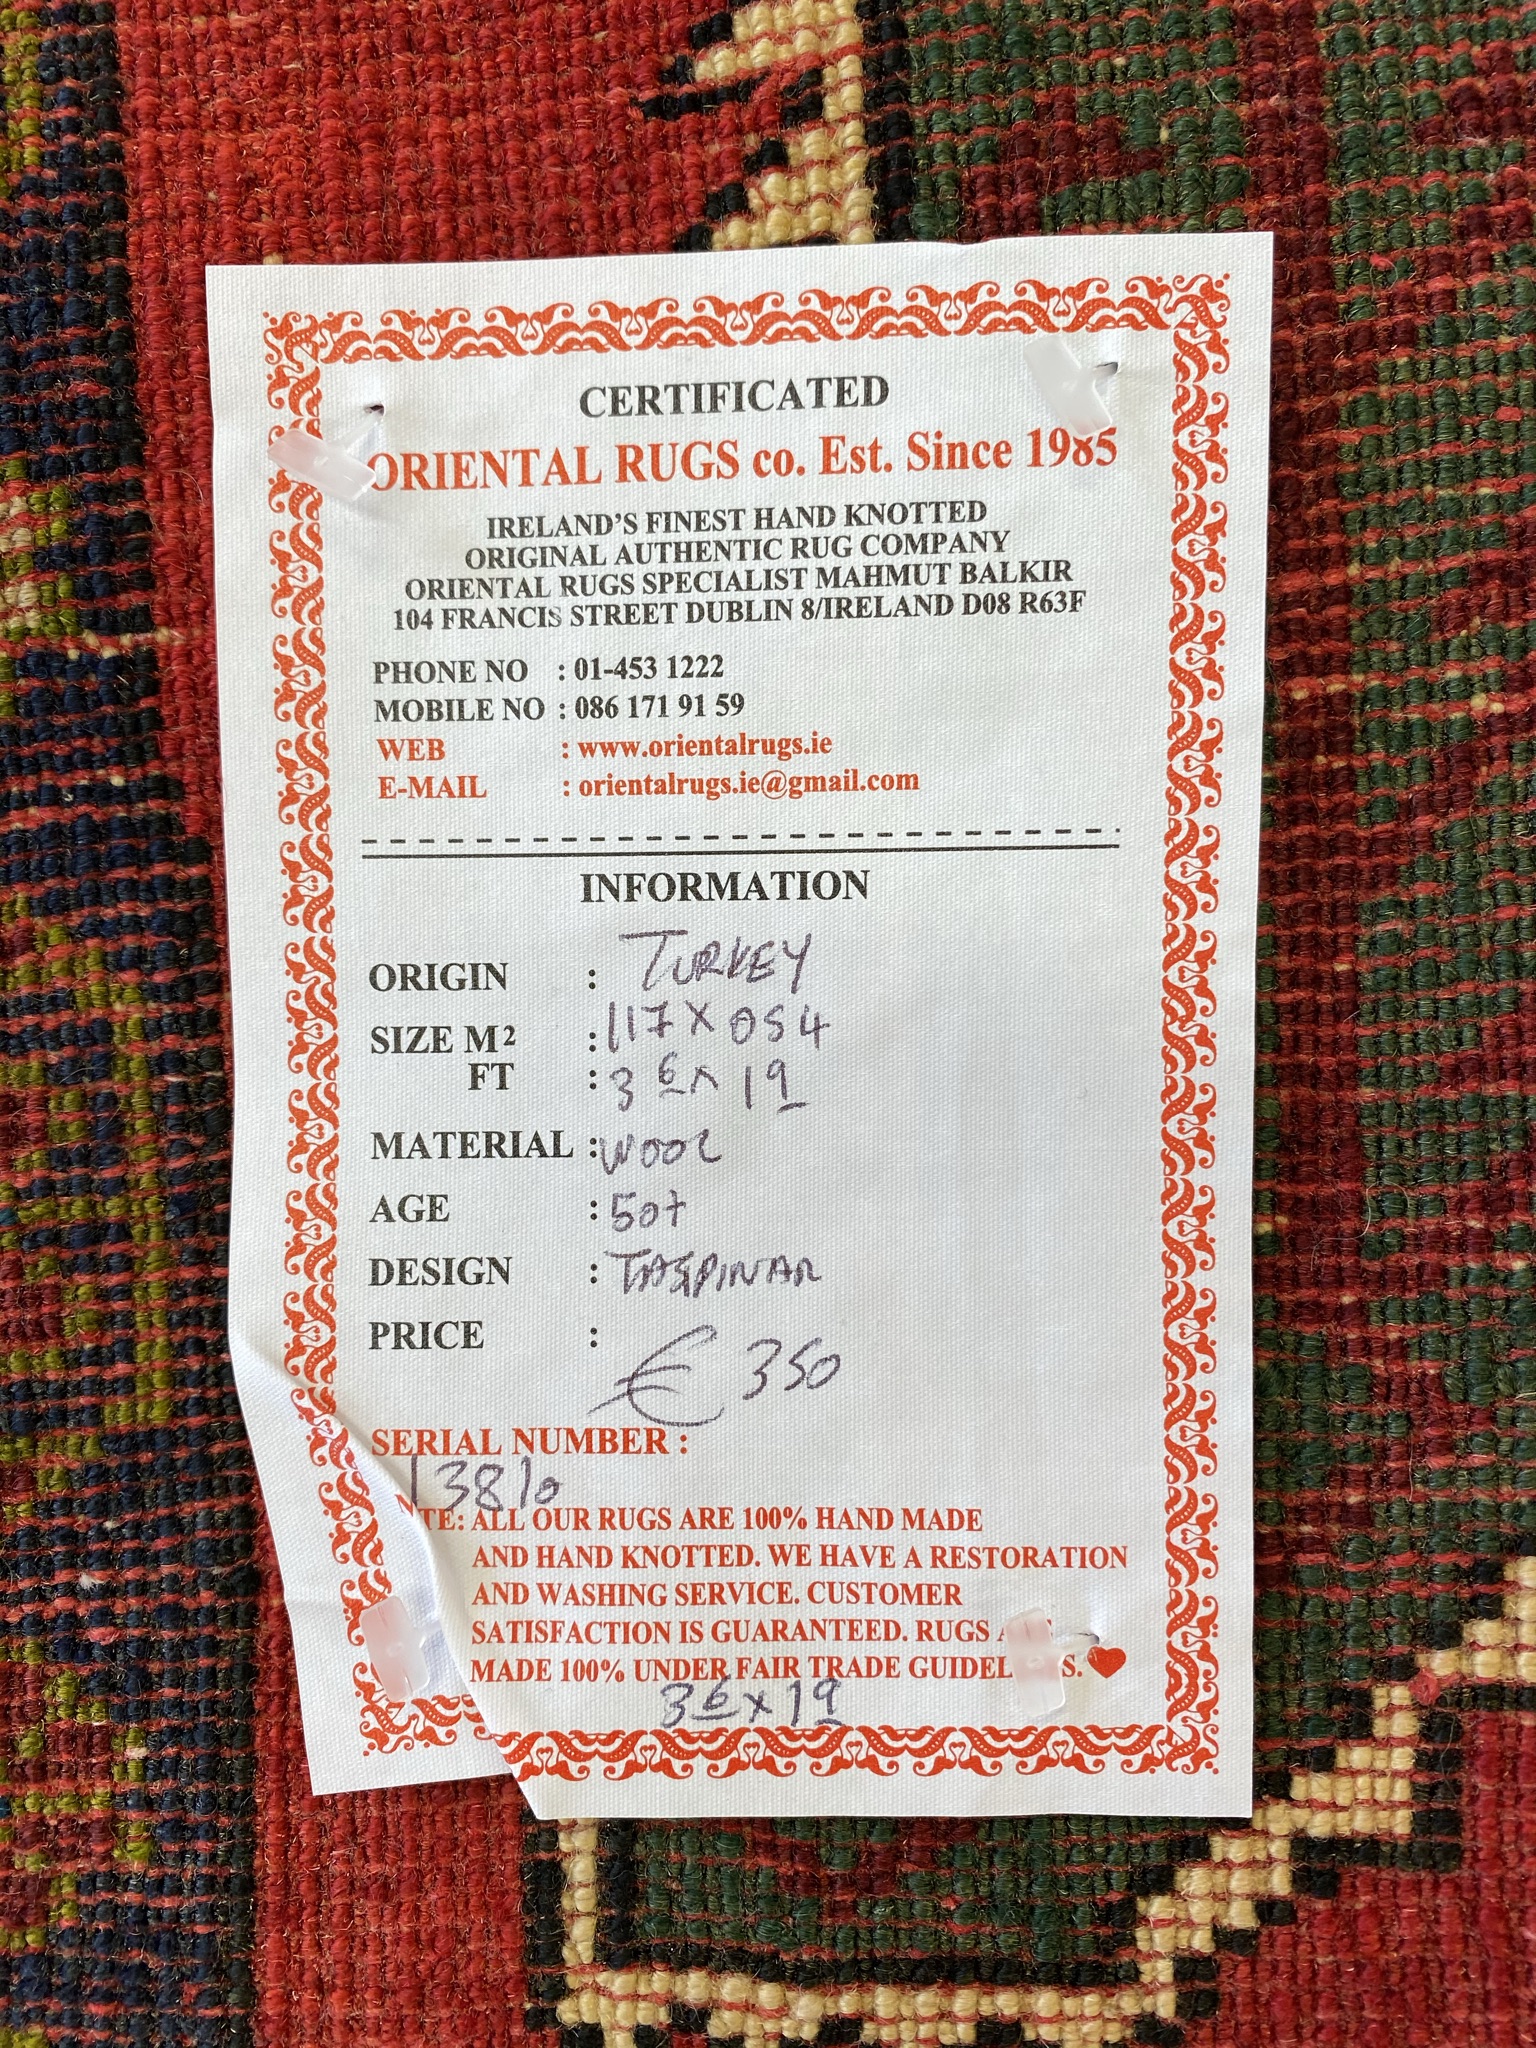 CERTIFICATED
ORIENTAL RUGS co. Est. Since 1985
IRELAND'S FINEST HAND KNOTTED
ORIGINAL AUTHENTIC RUG COMPANY
ORIENTAL RUGS SPECIALIST MAHMUT BALKIR
104 FRANCIS STREET DUBLIN 8/IRELAND D08 R63F
PHONE NO : 01-453 1222
MOBILE NO : 086 171 91 59
WEB : www.orientalrugs.ie
E-MAIL : orientalrugs.ie@gmail.com
INFORMATION
ORIGIN : TURKEY
SIZE M² : 117 X 054
FT : 3 6 x 1 9
MATERIAL : WOOL
AGE : 50+
DESIGN : TASPINAR
PRICE : € 350
SERIAL NUMBER :
13810
NTE: ALL OUR RUGS ARE 100% HAND MADE
AND HAND KNOTTED. WE HAVE A RESTORATION
AND WASHING SERVICE. CUSTOMER
SATISFACTION IS GUARANTEED. RUGS
MADE 100% UNDER FAIR TRADE GUIDEL S.
3 6 x 1 9